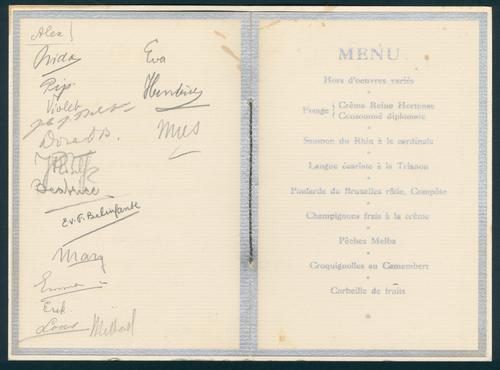 Alex!
Frida
Pip
Violet
Dora B.
Beatrice
Ev. F. Belinfante
Mary
Emma
Erik.
Loes Michael
Eva
Mies
MENU
Hors d'oeuvres variés
Potage { Crême Reine Hortense
Consommé diplomate
Saumon du Rhin à la cardinale
Langue écarlate à la Trianon
Poularde de Bruxelles rôtie, Compôte
Champignons frais à la crême
Pêches Melba
Croquignolles au Camembert
Corbeille de fruits